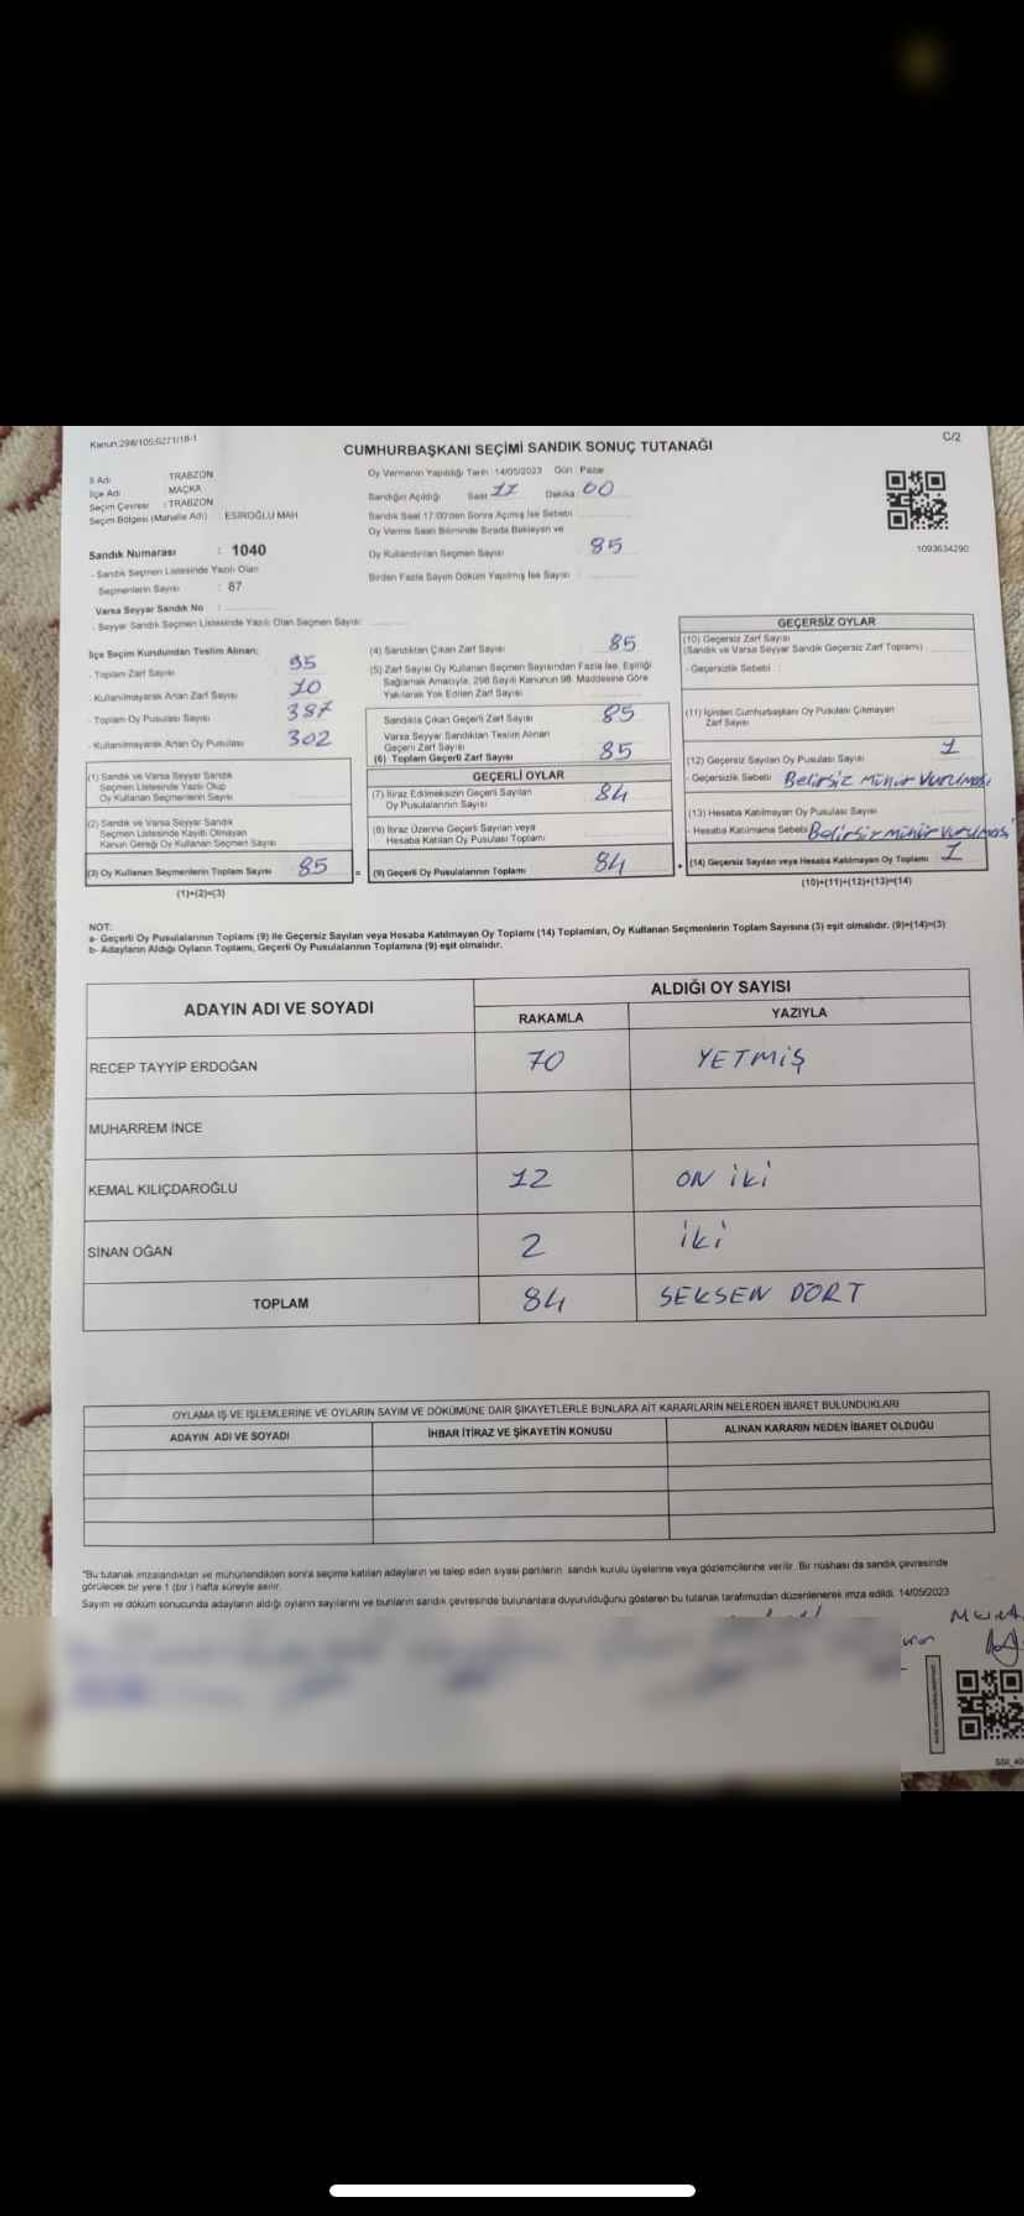 Kanun:298/105;6271/18-1
C/2
CUMHURBAŞKANI SEÇİMİ SANDIK SONUÇ TUTANAĞI
İl Adı TRABZON
İlçe Adı MAÇKA
Seçim Çevresi : TRABZON
Seçim Bölgesi (Mahalle Adı) : ESİROĞLU MAH
Sandık Numarası : 1040
- Sandık Seçmen Listesinde Yazılı Olan
Seçmenlerin Sayısı : 87
Varsa Seyyar Sandık No :
- Seyyar Sandık Seçmen Listesinde Yazılı Olan Seçmen Sayısı:
Oy Vermenin Yapıldığı Tarih :14/05/2023 Gün : Pazar
Sandığın Açıldığı Saat 17 Dakika 00
Sandık Saat 17:00'den Sonra Açılmış İse Sebebi
Oy Verme Saati Bitiminde Sırada Bekleyen ve
Oy Kullandırılan Seçmen Sayısı 85
Birden Fazla Sayım Döküm Yapılmış İse Sayısı :
1093634290
İlçe Seçim Kurulundan Teslim Alınan;
- Toplam Zarf Sayısı 95
- Kullanılmayarak Artan Zarf Sayısı 10
- Toplam Oy Pusulası Sayısı 387
- Kullanılmayarak Artan Oy Pusulası 302
(1) Sandık ve Varsa Seyyar Sandık
Seçmen Listesinde Yazılı Olup
Oy Kullanan Seçmenlerin Sayısı
(2) Sandık ve Varsa Seyyar Sandık
Seçmen Listesinde Kayıtlı Olmayan
Kanun Gereği Oy Kullanan Seçmen Sayısı
(3) Oy Kullanan Seçmenlerin Toplam Sayısı 85
(1)+(2)=(3)
(4) Sandıktan Çıkan Zarf Sayısı 85
(5) Zarf Sayısı Oy Kullanan Seçmen Sayısından Fazla İse, Eşitliği
Sağlamak Amacıyla, 298 Sayılı Kanunun 98. Maddesine Göre
Yakılarak Yok Edilen Zarf Sayısı
Sandıkta Çıkan Geçerli Zarf Sayısı 85
Varsa Seyyar Sandıktan Teslim Alınan
Geçerli Zarf Sayısı
(6) Toplam Geçerli Zarf Sayısı 85
GEÇERLİ OYLAR
(7) İtiraz Edilmeksizin Geçerli Sayılan
Oy Pusulalarının Sayısı 84
(8) İtiraz Üzerine Geçerli Sayılan veya
Hesaba Katılan Oy Pusulası Toplamı
= (9) Geçerli Oy Pusulalarının Toplamı 84
GEÇERSİZ OYLAR
(10) Geçersiz Zarf Sayısı
(Sandık ve Varsa Seyyar Sandık Geçersiz Zarf Toplamı)
- Geçersizlik Sebebi :
(11) İçinden Cumhurbaşkanı Oy Pusulası Çıkmayan
Zarf Sayısı
(12) Geçersiz Sayılan Oy Pusulası Sayısı 1
- Geçersizlik Sebebi Belirsiz Mühür Vurulması
(13) Hesaba Katılmayan Oy Pusulası Sayısı
- Hesaba Katılmama Sebebi Belirsiz mühür vurulması
+ (14) Geçersiz Sayılan veya Hesaba Katılmayan Oy Toplamı 1
(10)+(11)+(12)+(13)=(14)
NOT:
a- Geçerli Oy Pusulalarının Toplamı (9) ile Geçersiz Sayılan veya Hesaba Katılmayan Oy Toplamı (14) Toplamları, Oy Kullanan Seçmenlerin Toplam Sayısına (3) eşit olmalıdır. (9)+(14)=(3)
b- Adayların Aldığı Oyların Toplamı, Geçerli Oy Pusulalarının Toplamına (9) eşit olmalıdır.
ADAYIN ADI VE SOYADI
ALDIĞI OY SAYISI
RAKAMLA YAZIYLA
RECEP TAYYİP ERDOĞAN 70 YETMİŞ
MUHARREM İNCE
KEMAL KILIÇDAROĞLU 12 ON İKİ
SİNAN OĞAN 2 İKİ
TOPLAM 84 SEKSEN DÖRT
OYLAMA İŞ VE İŞLEMLERİNE VE OYLARIN SAYIM VE DÖKÜMÜNE DAİR ŞİKAYETLERLE BUNLARA AİT KARARLARIN NELERDEN İBARET BULUNDUKLARI
ADAYIN ADI VE SOYADI İHBAR İTİRAZ VE ŞİKAYETİN KONUSU ALINAN KARARIN NEDEN İBARET OLDUĞU
"Bu tutanak imzalandıktan ve mühürlendikten sonra seçime katılan adayların ve talep eden siyasi partilerin sandık kurulu üyelerine veya gözlemcilerine verilir. Bir nüshası da sandık çevresinde
görülecek bir yere 1 (bir ) hafta süreyle asılır.
Sayım ve döküm sonucunda adayların aldığı oyların sayılarını ve bunların sandık çevresinde bulunanlara duyurulduğunu gösteren bu tutanak tarafımızdan düzenlenerek imza edildi. 14/05/2023